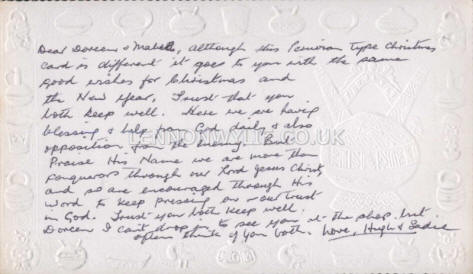 Dear Doreen & Mabelle, although this Peruvian type Christmas
card is different it goes to you with the same
good wishes for Christmas and
the New Year, Trust that you
both keep well. Here we are having
blessing & help from God daily & also
opposition from the enemy. But
Praise His Name we are more than
conquerors through our Lord Jesus Christ
and so are encouraged through His
Word to keep pressing on - our trust
in God. Trust you both keep well.
Doreen I can't drop in to see you at the shop but
often think of you both. Love, Hugh & Sadie